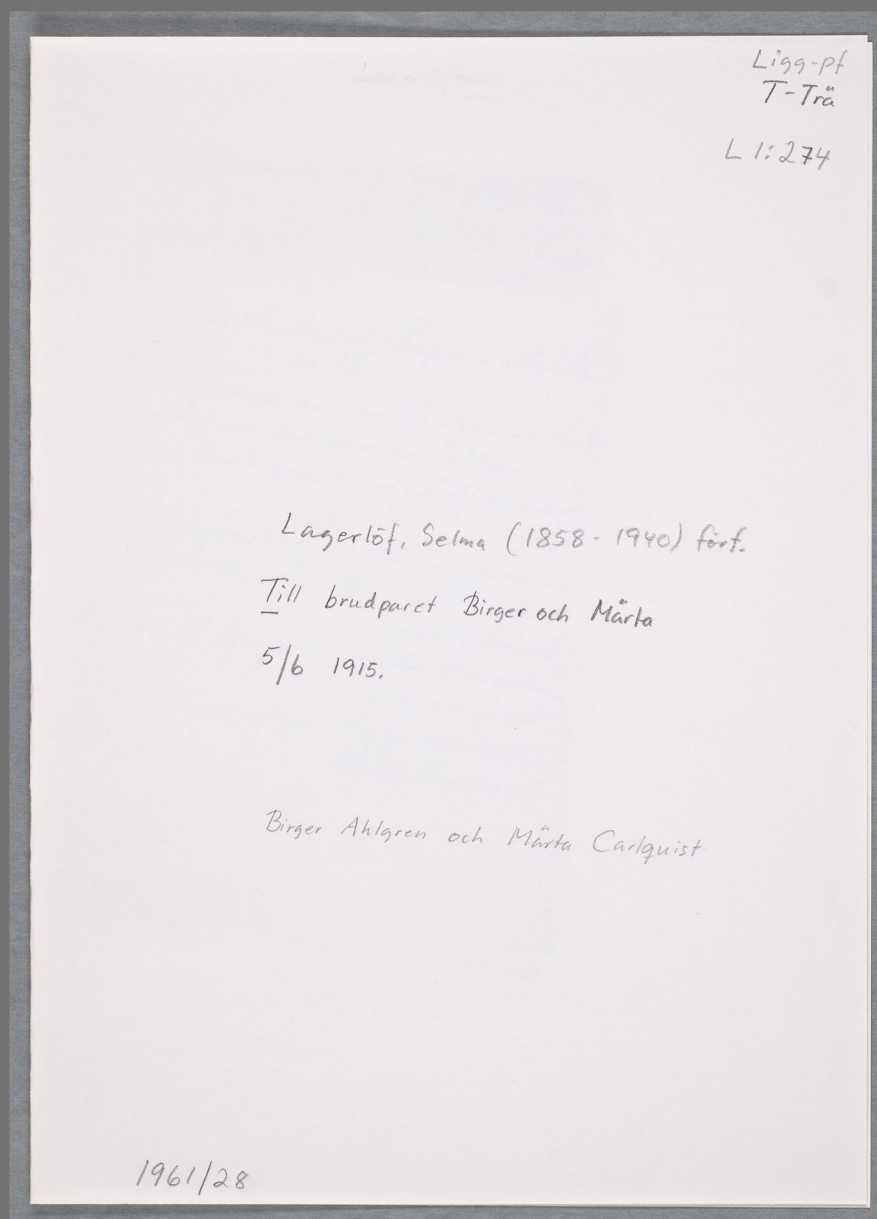 Ligg-pf
T-Trä
L 1:274
Lagerlöf, Selma (1858-1940) förf.
Till brudparet Birger och Märta
5/6 1915.
Birger Ahlgren och Märta Carlquist
1961/28